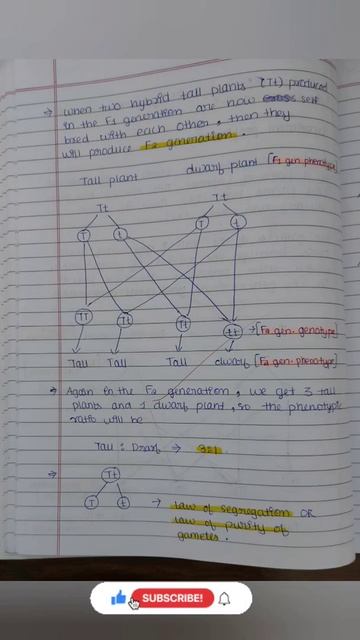 → When two hybrid tall plants (Tt) produced
in the F1 generation are now self
bred with each other, then they
will produce F2 generation.
Tall plant dwarf plant [F1 gen phenotype]
Tt Tt
T t T t
TT Tt Tt tt → [F2 gen. genotype]
Tall Tall Tall dwarf [F2 gen. phenotype]
→ Again in the F2 generation, we get 3 tall
plants and 1 dwarf plant, so the phenotypic
ratio will be
Tall : Drarf → 3:1
→ Tt
T t → law of segregation OR
law of purity of
gametes.
SUBSCRIBE!